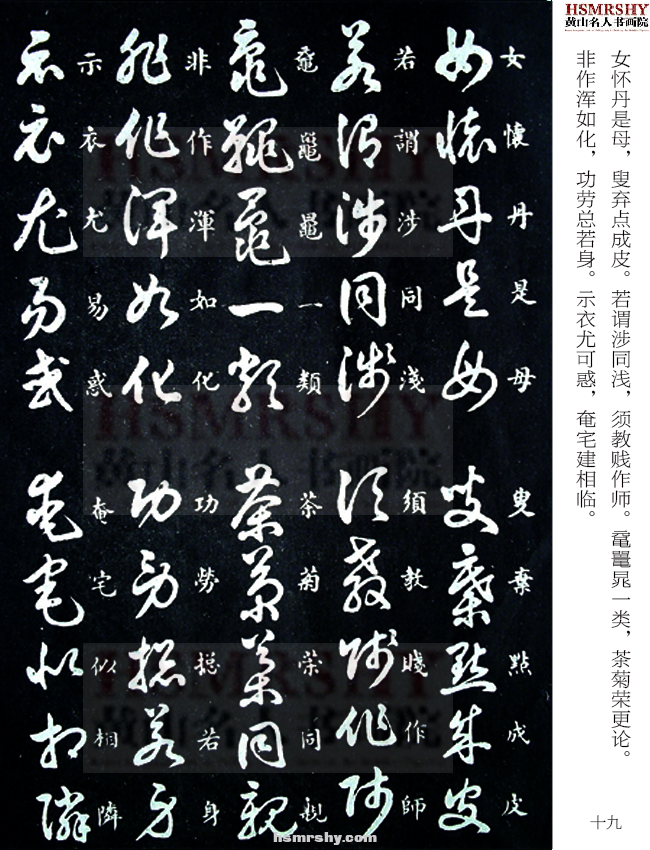 HSMRSHY
黄山名人书画院
女怀丹是母，叟弃点成皮。若谓涉同浅，须教贱作师。鼋鼍晁一类，茶菊荣更论。
非作浑如化，功劳总若身。示衣尤可惑，奄宅建相临。
十九
女懷丹是母 叟棄點成皮
若謂涉同淺 須教賤作師
黿鼉鼂一類 茶菊榮同親
非作渾如化 功勞揔若身
示衣尤易惑 奄宅似相隣
hsmrshy.com